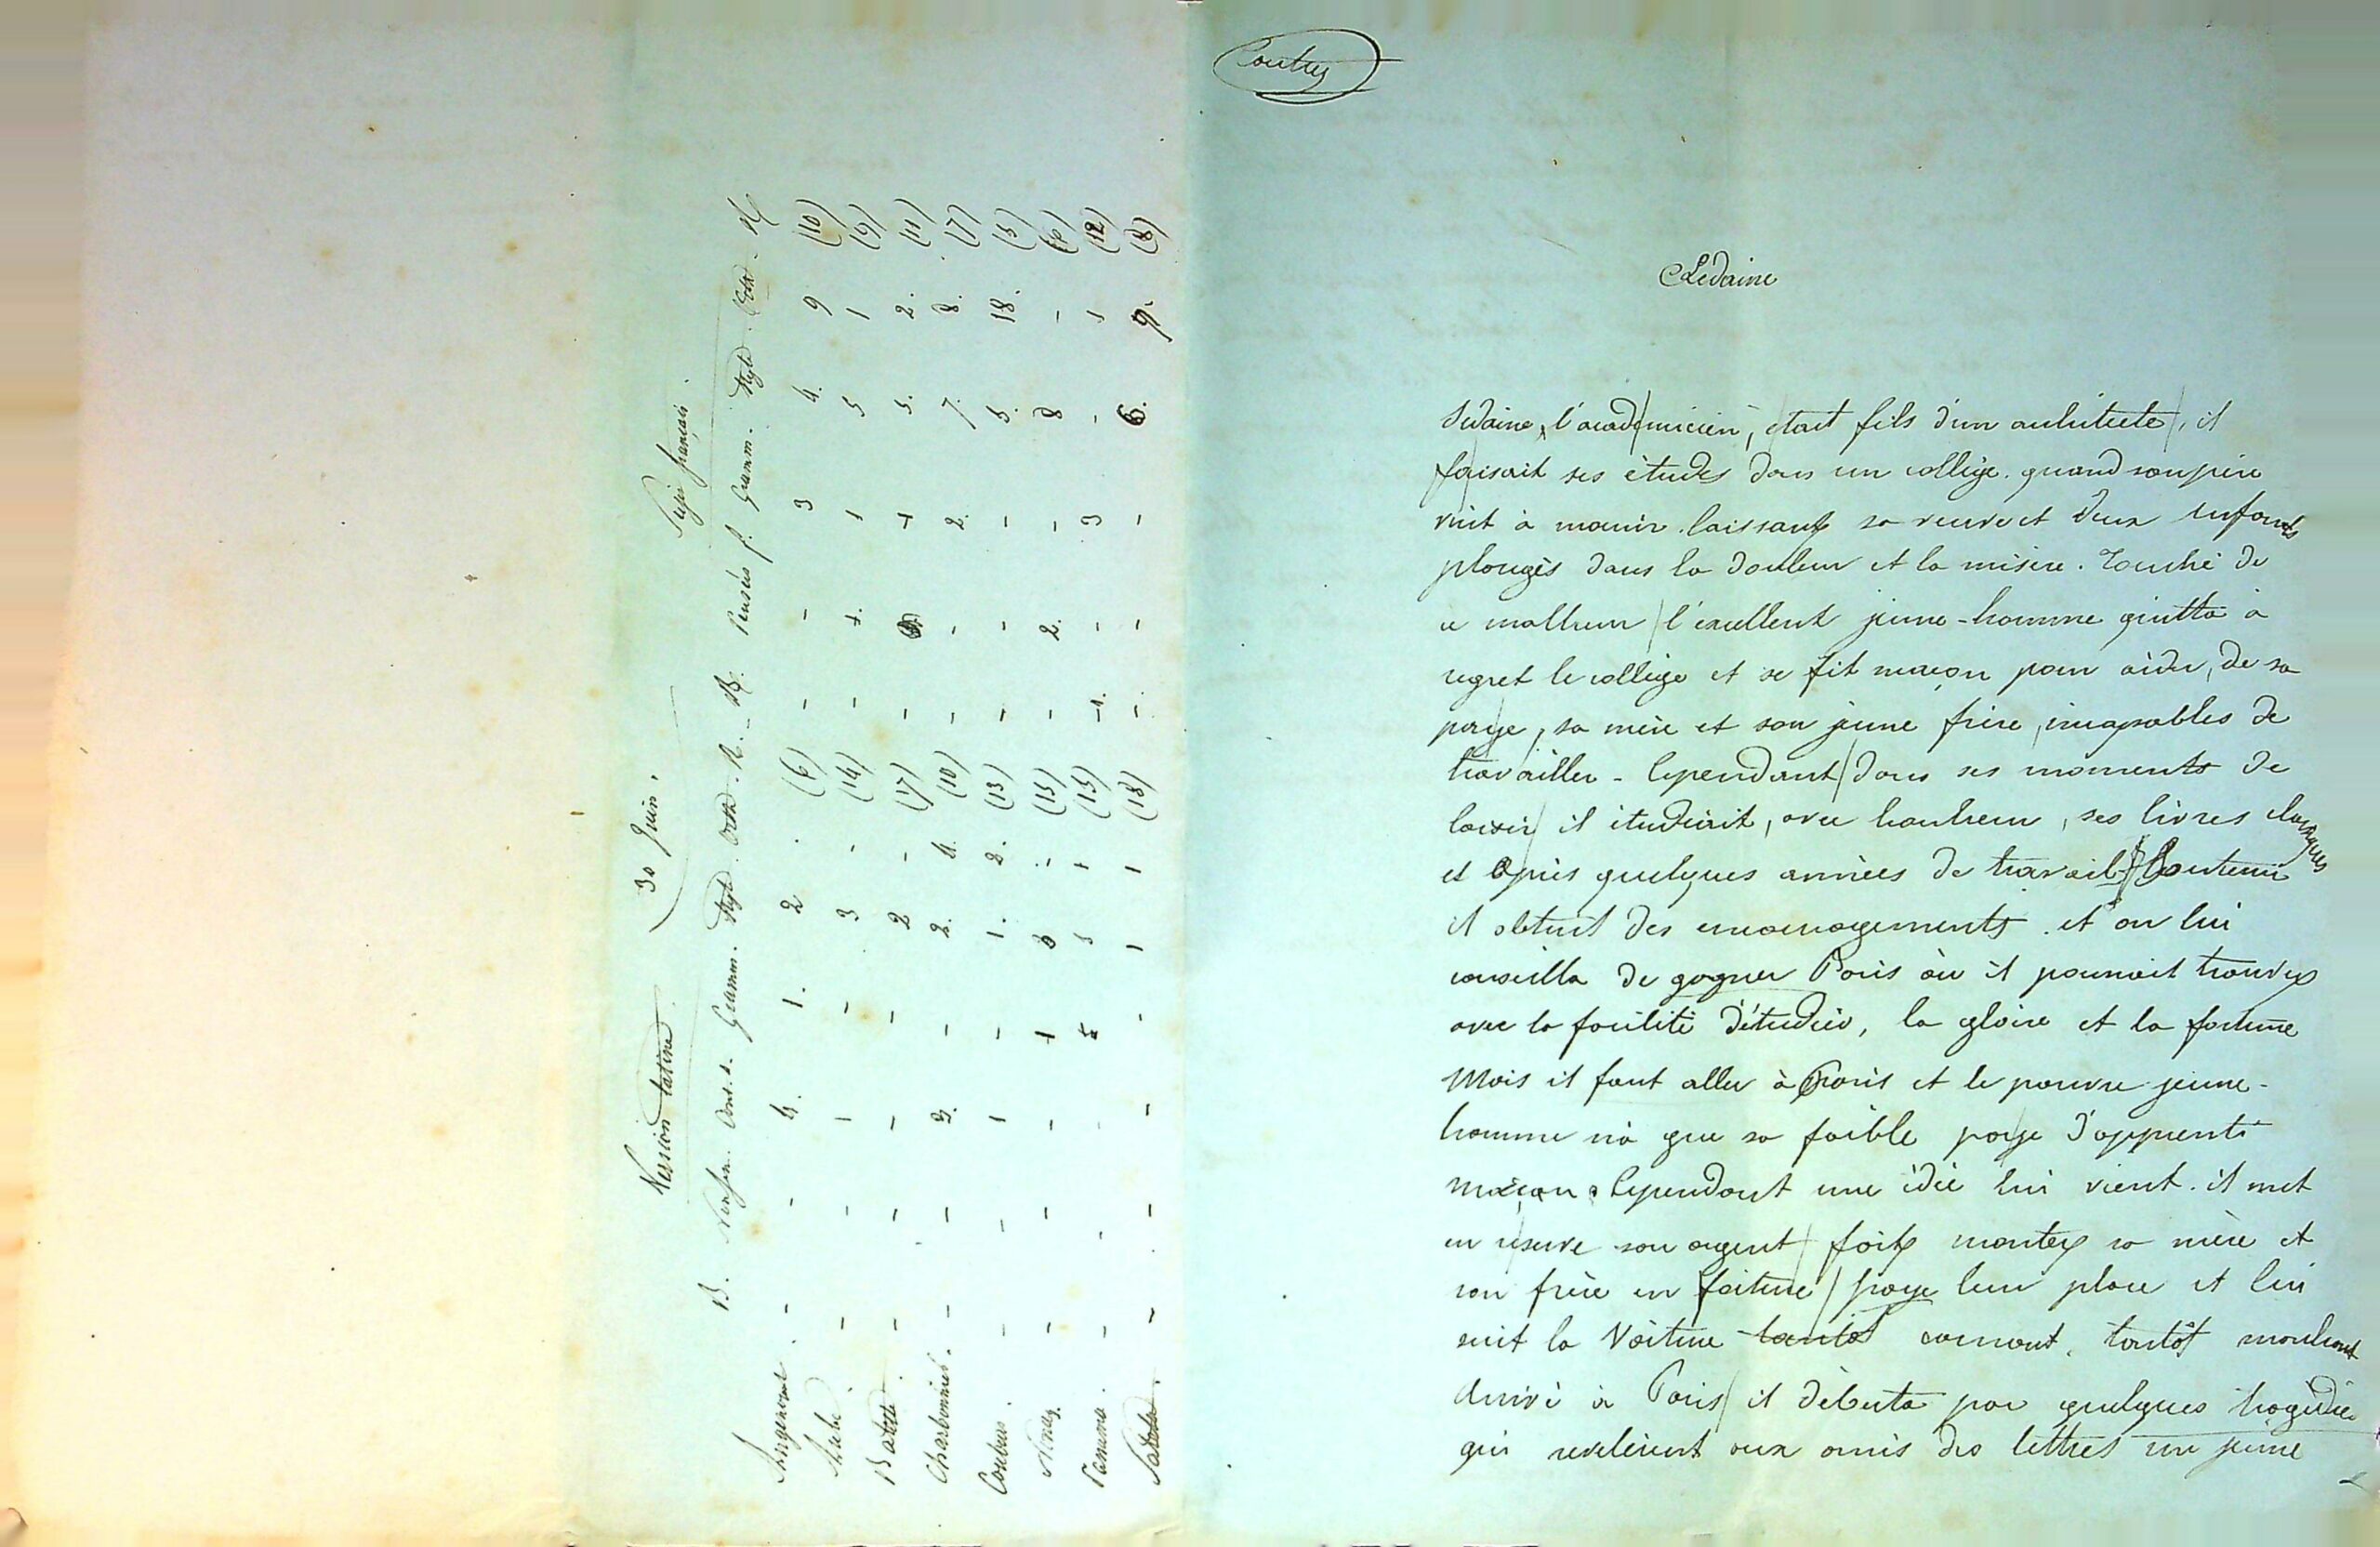 30 Juin.
Version latine
Sujet français.
B. Nonsen. Cont.s. Gramm. Styl. Orth. R. _ B. Pensées f. Gramm. Styl. Orth. R
Angenont. - - 4. 1. 2 . (6) - - 3 4. 9 (10)
Aubé. - - 1 - 3 - (14) - 1. 1 5 1 (9)
Batett. - - - - 2 - (17) - 1 5. 2. (11)
Charbonnies. - - 3. - 2. 4. (10) - - 2. 7. 8. (7)
Coubus. - - 1 - 1. 2. (13) - - - 5. 18. (5)
- - - 1 3 - (15) - 2. - 8 - (6)
- - 5 1 (15) 1. - 3 - 1 (12)
- - - - 1 1 (18) - - - 6. 9. (8)
Coutuy
Sedaine
Sedaine, l'académicien, était fils d'un architecte, il
faisait ses études dans un collège. quand son père
vint à mourir. laissant sa veuve et deux enfants
plongés dans la douleur et la misère. Touché de
ce malheur l'excellent jeune-homme quitta à
regret le collège et se fit maçon pour aider, de sa
paye, sa mère et son jeune frère, incapables de
travailler - Cependant dans ses moments de
loisir il étudiait, avec bonheur, ses livres classiques
et après quelques années de travail soutenu
il obtint des encouragements. et on lui
conseilla de gagner Paris où il pourrait trouver
avec la facilité d'étudier, la gloire et la fortune
Mais il faut aller à Paris et le pauvre jeune-
homme n'a que sa faible paye d'apprenti
maçon. Cependant une idée lui vient. il met
en réserve son argent fait monter sa mère et
son frère en foiture paye leur place et lui
suit la voiture tantôt courant, tantôt marchant
Arrivé à Paris il débuta par quelques tragédies
qui révélèrent aux amis des lettres un jeune